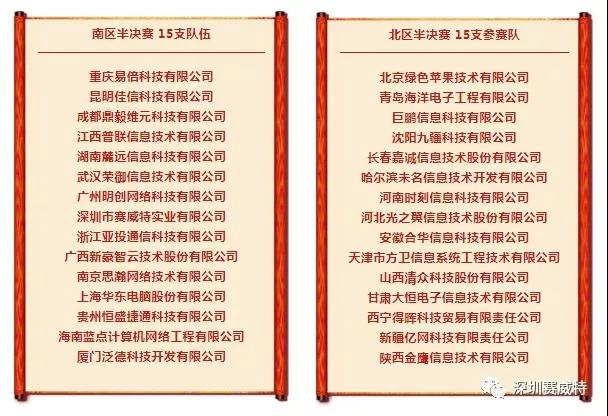 南区半决赛 15支队伍
重庆易倍科技有限公司
昆明佳信科技有限公司
成都鼎毅维元科技有限公司
江西普联信息技术有限公司
湖南麓远信息科技有限公司
武汉荣御信息技术有限公司
广州明创网络科技有限公司
深圳市赛威特实业有限公司
浙江亚投通信科技有限公司
广西新豪智云技术股份有限公司
南京思瀚网络技术有限公司
上海华东电脑股份有限公司
贵州恒盛捷通科技有限公司
海南蓝点计算机网络工程有限公司
厦门泛德科技开发有限公司
北区半决赛 15支参赛队
北京绿色苹果技术有限公司
青岛海洋电子工程有限公司
巨鹏信息科技有限公司
沈阳九骊科技有限公司
长春嘉诚信息技术股份有限公司
哈尔滨未名信息技术开发有限公司
河南时刻信息科技有限公司
河北光之翼信息技术股份有限公司
安徽合华信息科技有限公司
天津市方卫信息系统工程技术有限公司
山西清众科技股份有限公司
甘肃大恒电子信息技术有限公司
西宁得晖科技贸易有限责任公司
新疆亿网科技有限责任公司
陕西金鹰信息技术有限公司
深圳赛威特